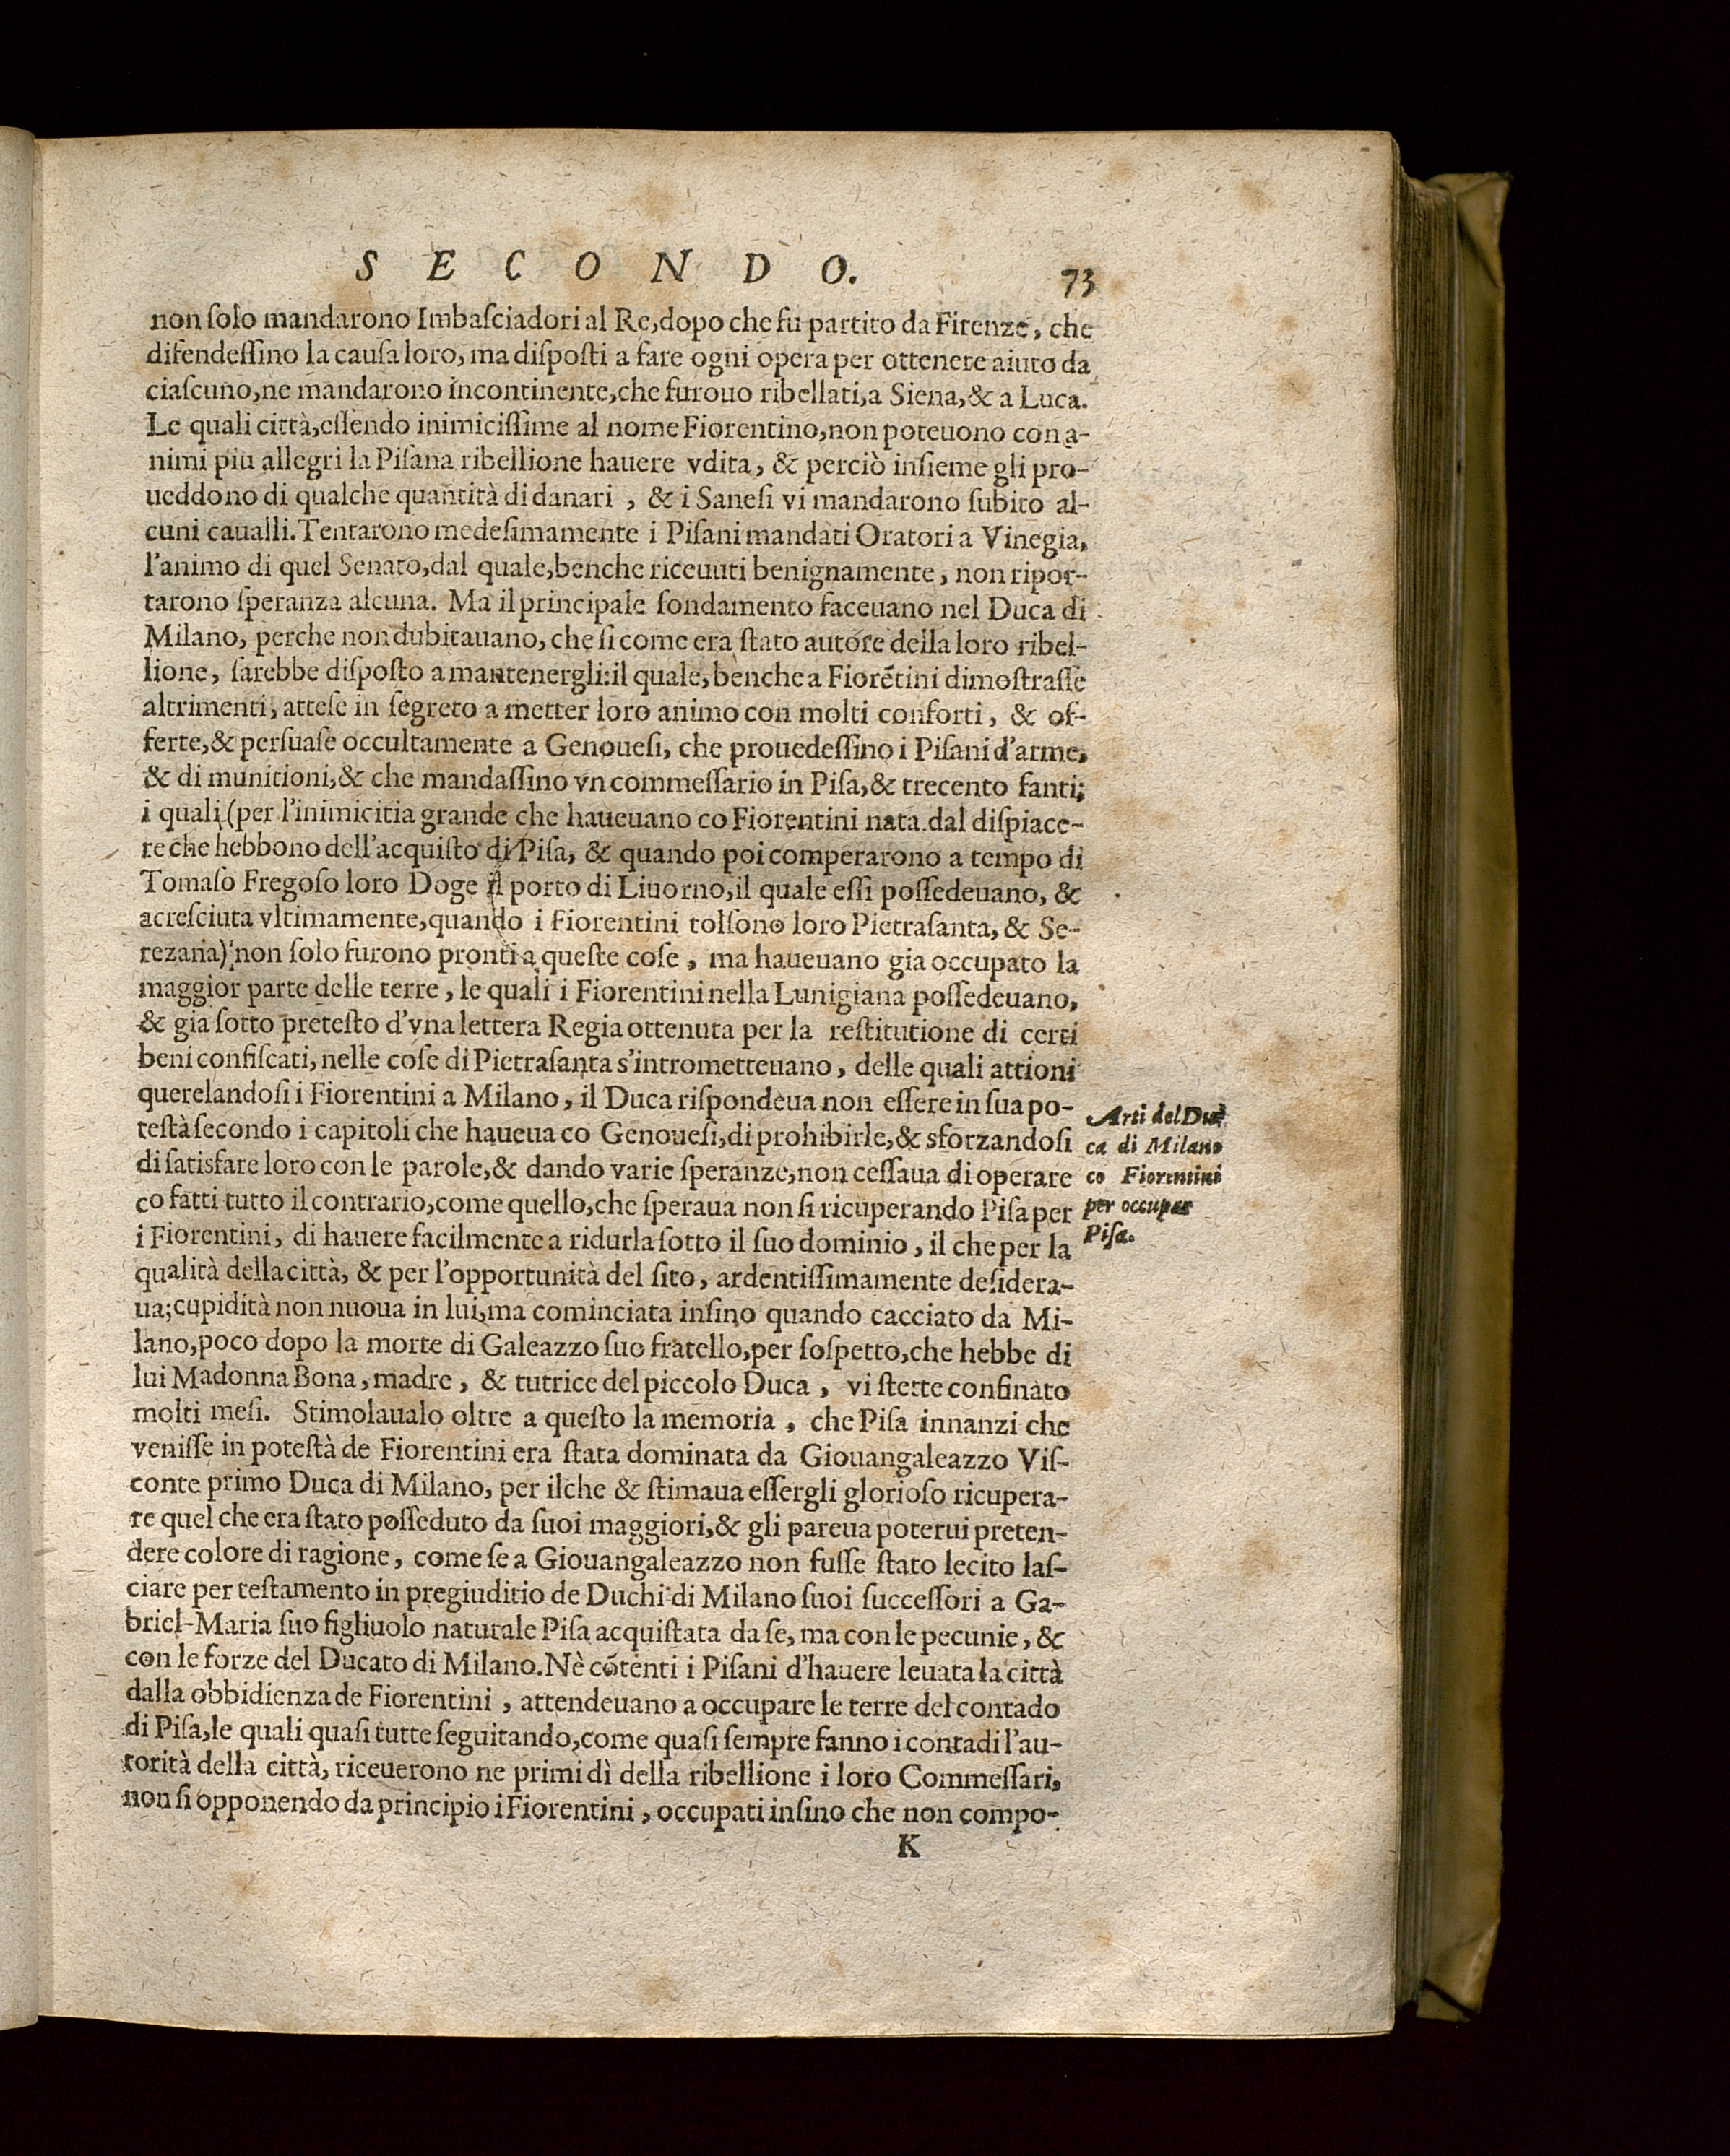 S E C O N D O.
73
non ſolo mandarono Imbaſciadori al Re, dopo che fu partito da Firenze, che
difendeſſino la cauſa loro, ma diſpoſti a fare ogni opera per ottenere aiuto da
ciaſcuno, ne mandarono incontinente, che furouo ribellati, a Siena, & a Luca.
Le quali città, eſſendo inimiciſſime al nome Fiorentino, non poteuono con a-
nimi piu allegri la Piſana ribellione hauere vdita, & perciò inſieme gli pro-
ueddono di qualche quantità di danari, & i Saneſi vi mandarono ſubito al-
cuni caualli. Tentarono medeſimamente i Piſani mandati Oratori a Vinegia,
l'animo di quel Senato, dal quale, benche riceuuti benignamente, non ripor-
tarono ſperanza alcuna. Ma il principale fondamento faceuano nel Duca di
Milano, perche non dubitauano, che ſi come era ſtato autore della loro ribel-
lione, ſarebbe diſpoſto a mantenergli: il quale, benche a Fiorẽtini dimoſtraſſe
altrimenti, atteſe in ſegreto a metter loro animo con molti conforti, & of-
ferte, & perſuaſe occultamente a Genoueſi, che prouedeſſino i Piſani d'arme,
& di munitioni, & che mandaſſino vn commeſſario in Piſa, & trecento fanti;
i quali (per l'inimicitia grande che haueuano co Fiorentini nata dal diſpiace-
re che hebbono dell'acquiſto di Piſa, & quando poi comperarono a tempo di
Tomaſo Fregoſo loro Doge il porto di Liuorno, il quale eſſi poſſedeuano, &
acreſciuta vltimamente, quando i Fiorentini tolſono loro Pietraſanta, & Se-
rezana) non ſolo furono pronti a queſte coſe, ma haueuano gia occupato la
maggior parte delle terre, le quali i Fiorentini nella Lunigiana poſſedeuano,
& gia ſotto preteſto d'vna lettera Regia ottenuta per la reſtitutione di certi
beni confiſcati, nelle coſe di Pietraſanta s'intrometteuano, delle quali attioni
querelandoſi i Fiorentini a Milano, il Duca riſpondeua non eſſere in ſua po-
teſtà ſecondo i capitoli che haueua co Genoueſi, di prohibirle, & sforzandoſi
di ſatisfare loro con le parole, & dando varie ſperanze, non ceſſaua di operare
co fatti tutto il contrario, come quello, che ſperaua non ſi ricuperando Piſa per
i Fiorentini, di hauere facilmente a ridurla ſotto il ſuo dominio, il che per la
qualità della città, & per l'opportunità del ſito, ardentiſſimamente deſidera-
ua; cupidità non nuoua in lui, ma cominciata inſino quando cacciato da Mi-
lano, poco dopo la morte di Galeazzo ſuo fratello, per ſoſpetto, che hebbe di
lui Madonna Bona, madre, & tutrice del piccolo Duca, vi ſtette confinato
molti meſi. Stimolaualo oltre a queſto la memoria, che Piſa innanzi che
veniſſe in poteſtà de Fiorentini era ſtata dominata da Giouangaleazzo Viſ-
conte primo Duca di Milano, per ilche & ſtimaua eſſergli glorioſo ricupera-
re quel che era ſtato poſſeduto da ſuoi maggiori, & gli pareua poterui preten-
dere colore di ragione, come ſe a Giouangaleazzo non fuſſe ſtato lecito laſ-
ciare per teſtamento in pregiuditio de Duchi di Milano ſuoi ſucceſſori a Ga-
briel-Maria ſuo figliuolo naturale Piſa acquiſtata da ſe, ma con le pecunie, &
con le forze del Ducato di Milano. Nè cõtenti i Piſani d'hauere leuata la città
dalla obbidienza de Fiorentini, attendeuano a occupare le terre del contado
di Piſa, le quali quaſi tutte ſeguitando, come quaſi ſempre fanno i contadi l'au-
torità della città, riceuerono ne primi dì della ribellione i loro Commeſſari,
non ſi opponendo da principio i Fiorentini, occupati inſino che non compo-
K
Arti del Du-
ca di Milano
co Fiorentini
per occupar
Piſa.